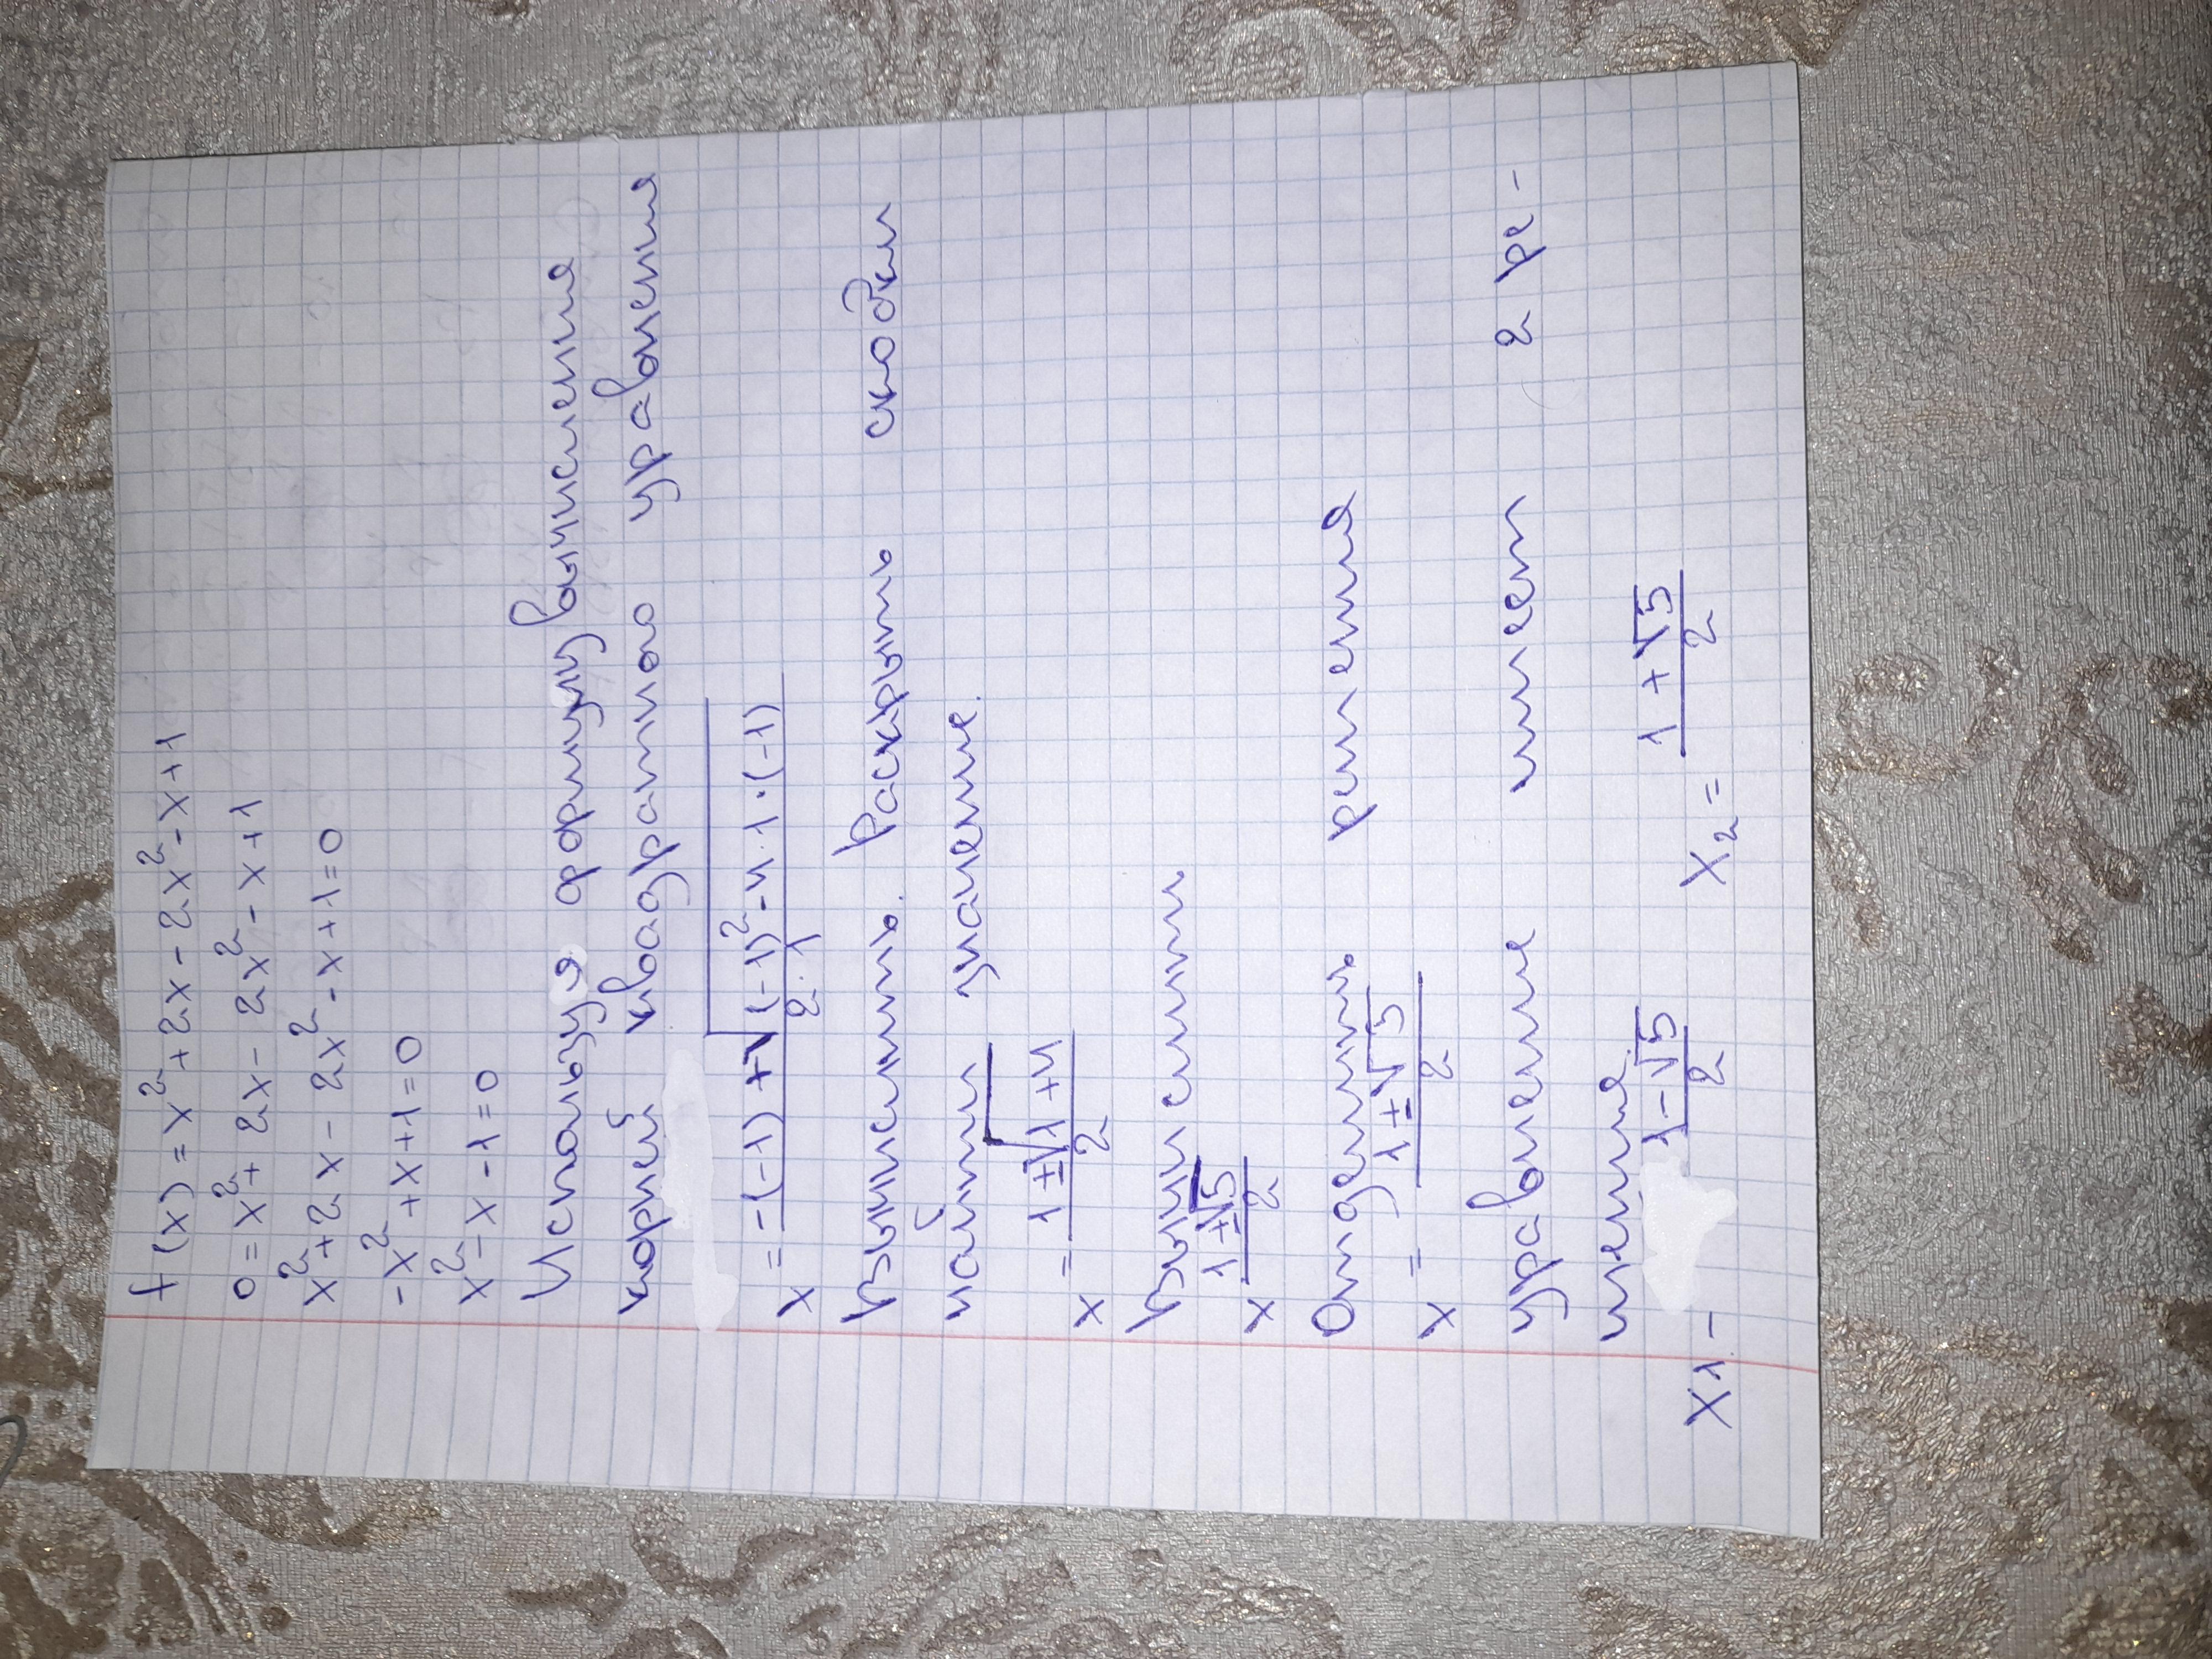 f(x) = x² + 2x - 2x² - x + 1
0 = x² + 2x - 2x² - x + 1
x² + 2x - 2x² - x + 1 = 0
-x² + x + 1 = 0
x² - x - 1 = 0
Используя формулу вычисления
корней квадратного уравнения
x = -(-1) + √(-1)² - 4 · 1 · (-1) / 2 · 1
Вычислить. Раскрыть скобки
найти значение.
x = 1 ± √1 + 4 / 2
Вычислить
x 1 ± √5 / 2
Отделить решения
x = 1 ± √5 / 2
уравнение имеет 2 ре-
шение
x1 - 1 - √5 / 2 x2 = 1 + √5 / 2